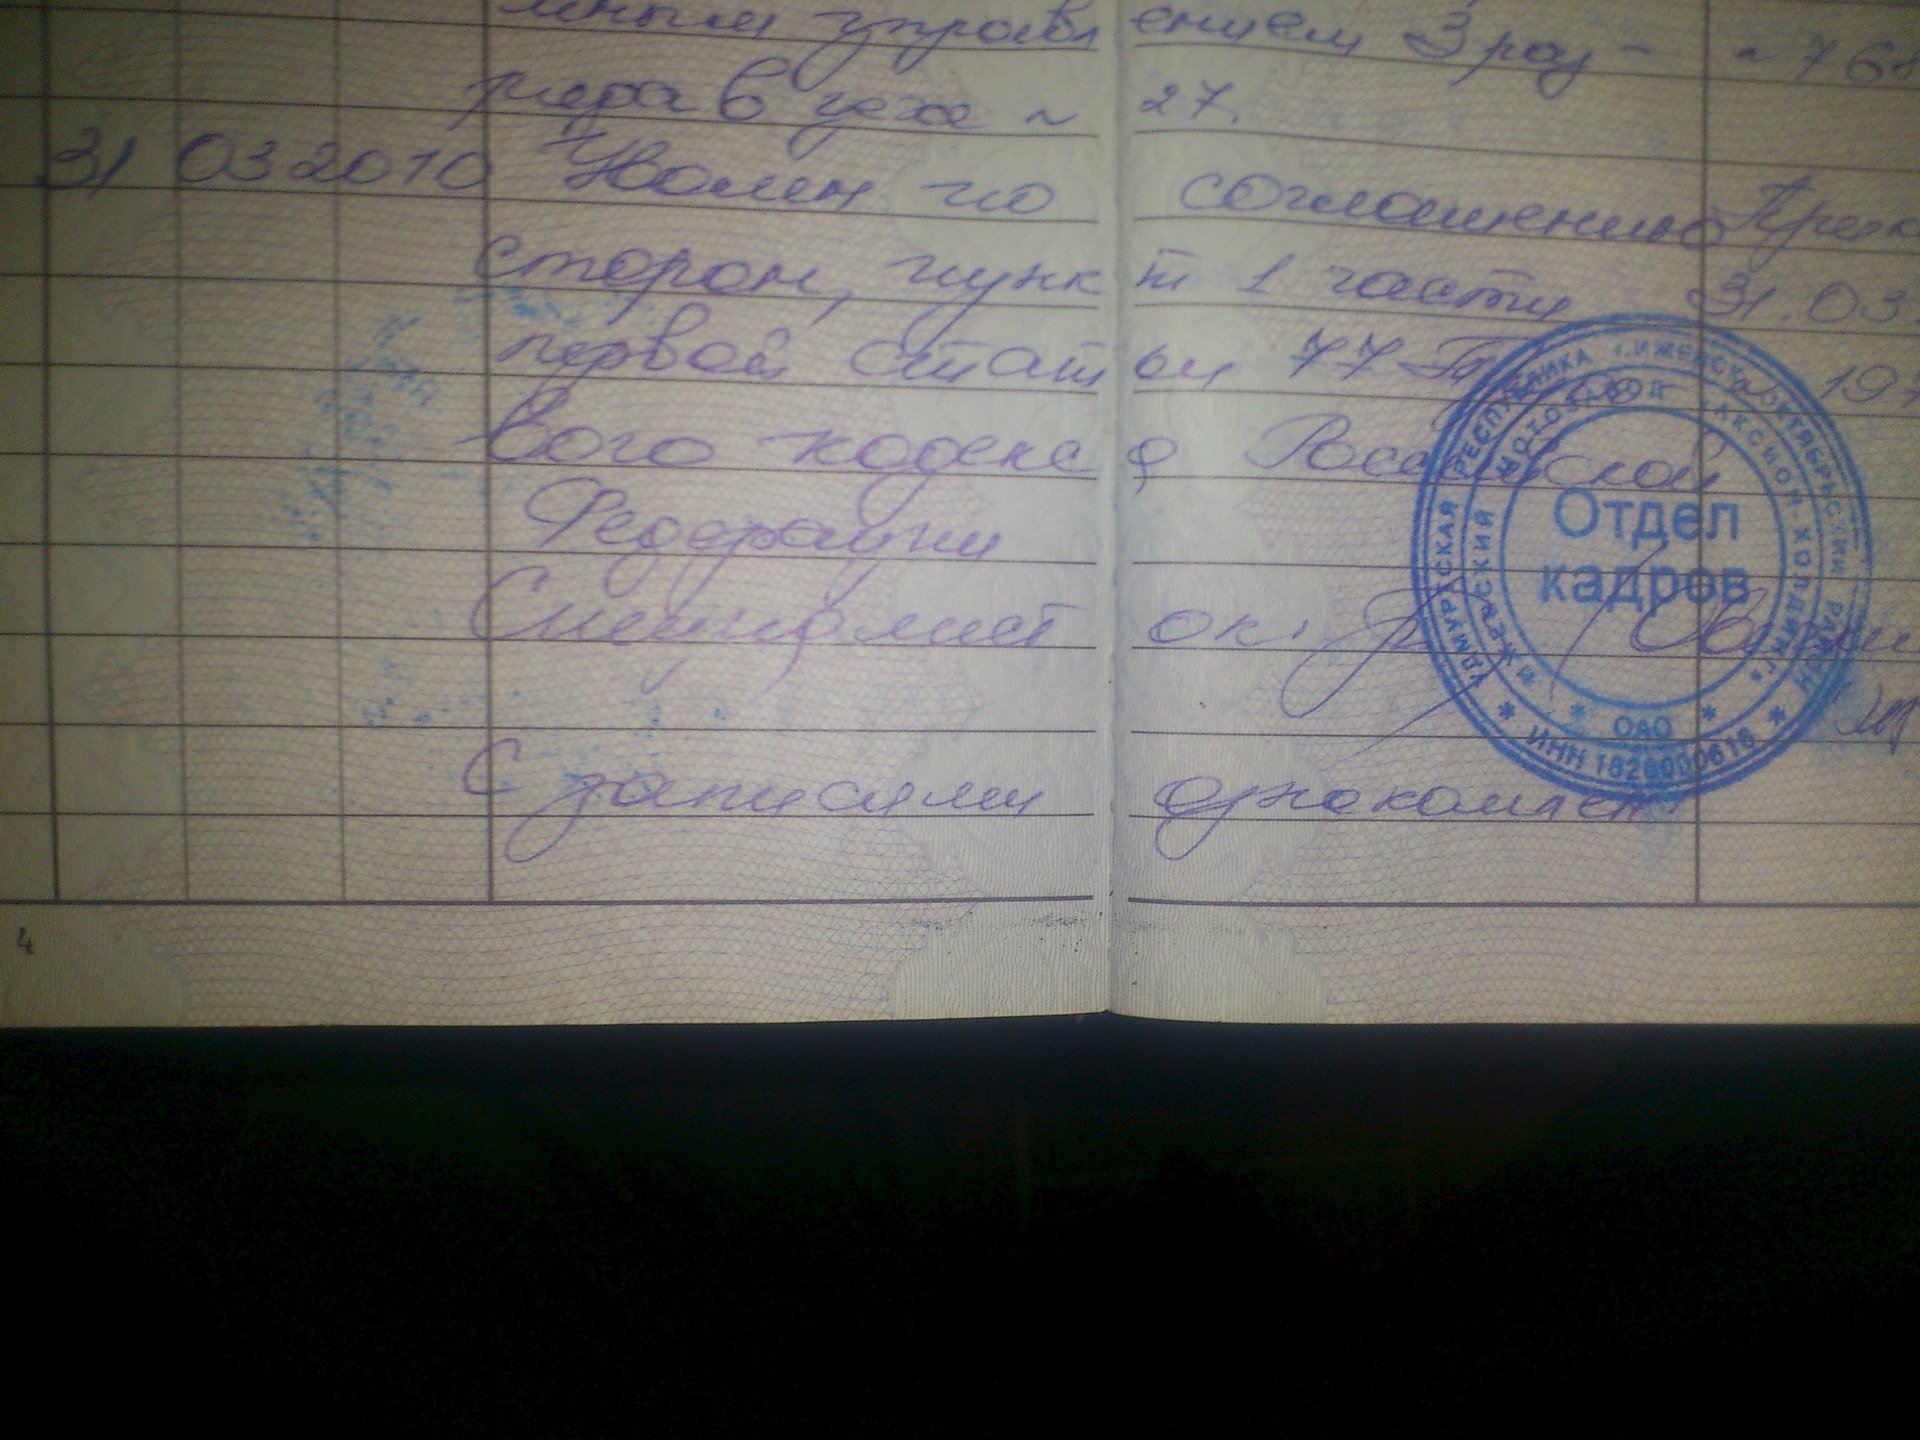 ным управлением 3 раз- № 768
ряда в цехе № 27.
31 03 2010 Уволен по соглашению Прика
сторон, пункт 1 части 31.03.
первой статьи 77 Тру № 197
вого кодекса Российской
Федерации
Специалист ОК.
С записями ознакомлен
4
УДМУРТСКАЯ РЕСПУБЛИКА г.ИЖЕВСК ОКТЯБРЬСКИЙ РАЙОН
ИЖЕВСКИЙ МОТОЗАВОД АКСИОН-ХОЛДИНГ
Отдел
кадров
ОАО
ИНН 1826000616